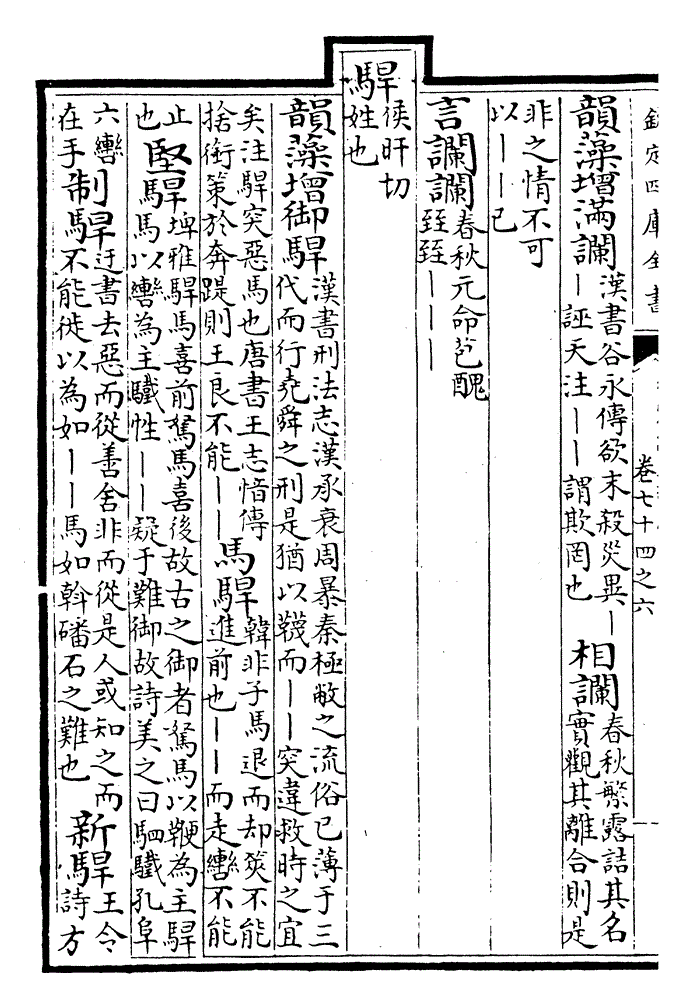 欽定四庫全書　卷七十四之六
韻藻增滿讕漢書谷永傳欲末殺災異丨
丨誣天注丨丨謂欺罔也
相讕春秋繁露詰其名
實觀其離合則是
非之情不可
以丨丨已
言讕讕春秋元命苞醜
臸臸丨丨丨
駻侯旰切
姓也
韻藻增御駻漢書刑法志漢承衰周暴秦極敝之流俗已薄于三
代而行堯舜之刑是猶以鞿而丨丨突違救時之宜
矣注駻突惡馬也唐書王志愔傳
捨銜策於奔踶則王良不能丨丨
馬駻韓非子馬退而却筴不能
進前也丨丨而走轡不能
止
也
堅駻埤雅駻馬喜前駑馬喜後故古之御者駑馬以鞭為主駻
馬以轡為主驖性丨丨疑于難御故詩美之曰駟驖孔阜
六轡
在手
制駻迂書去惡而從善舍非而從是人或知之而
不能徙以為如丨丨馬如斡磻石之難也
新駻王令
詩方